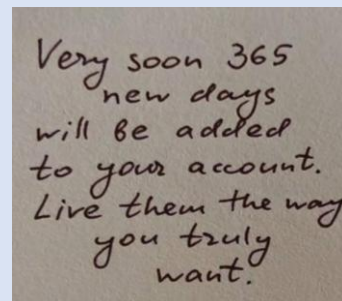 Very soon 365
new days
will be added
to your account.
Live them the way
you truly
want.